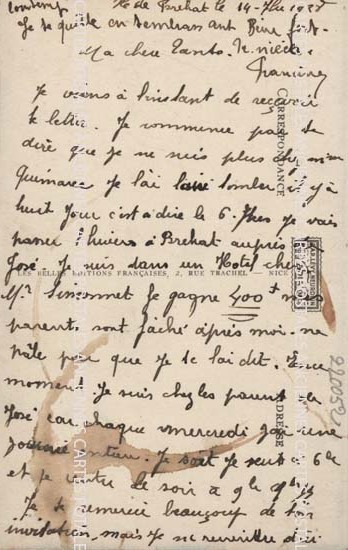 Longtemp Ile de Brehat le 14-7bre 1927
Je te quitte en t'embrassant Bien fort.
Ma chere Tante. Ta nièce
Francine
Je viens à l'instant de recevoir
ta lettre. Je commence par te
dire que je ne suis plus chez mme
Quimarec Je l'ai laissé tomber il y à
huit Jour c'est à dire le 6. 7bre Je vais
passer l'hivers à Brehat auprès
José. Je suis dans un Hotel chez
LES BELLES EDITIONS FRANÇAISES, 2, RUE TRACHEL — NICE
Mr Simonnet Je gagne 400f mes
parents sont faché d'après moi. ne
pas que Je te l'ai dit. En ce
moment Je suis chez les parents de
José car chaque mercredi j'ai une
journée entière. Je sort Je
et Je rentre le soir à 9h
Je te remercie beaucoup de ton
invitation, mais Je ne
CORRESPONDANCE
ADRESSE